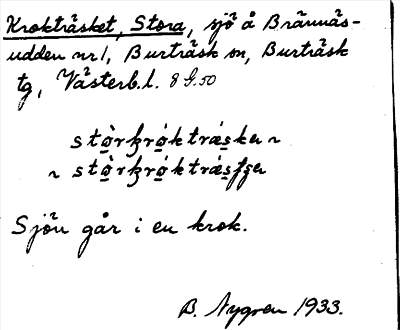 Krokträsket, Stora, sjö å Brännäs-
udden nr 1, Burträsk sn, Burträsk
tg, Västerb. l. 8 G. 50
stò̱rkrò̱ktrǽskə n ~
~ stò̱rkrò̱ktrǽsʃən
Sjön går i en krok.
B. Nygren 1933.